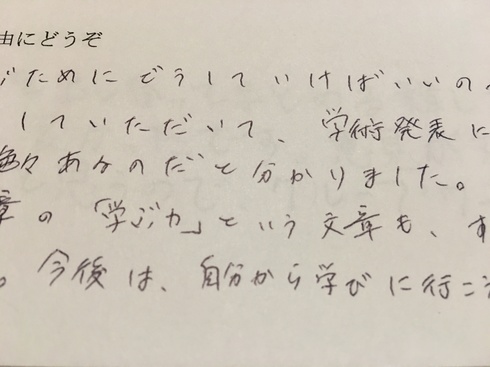 由にどうぞ
ぶためにどうしていけばいいの
していただいて、学術発表に
色々あるのだと分かりました。
章の「学ぶ力」という文章も、す
。今後は、自分から学びに行こう